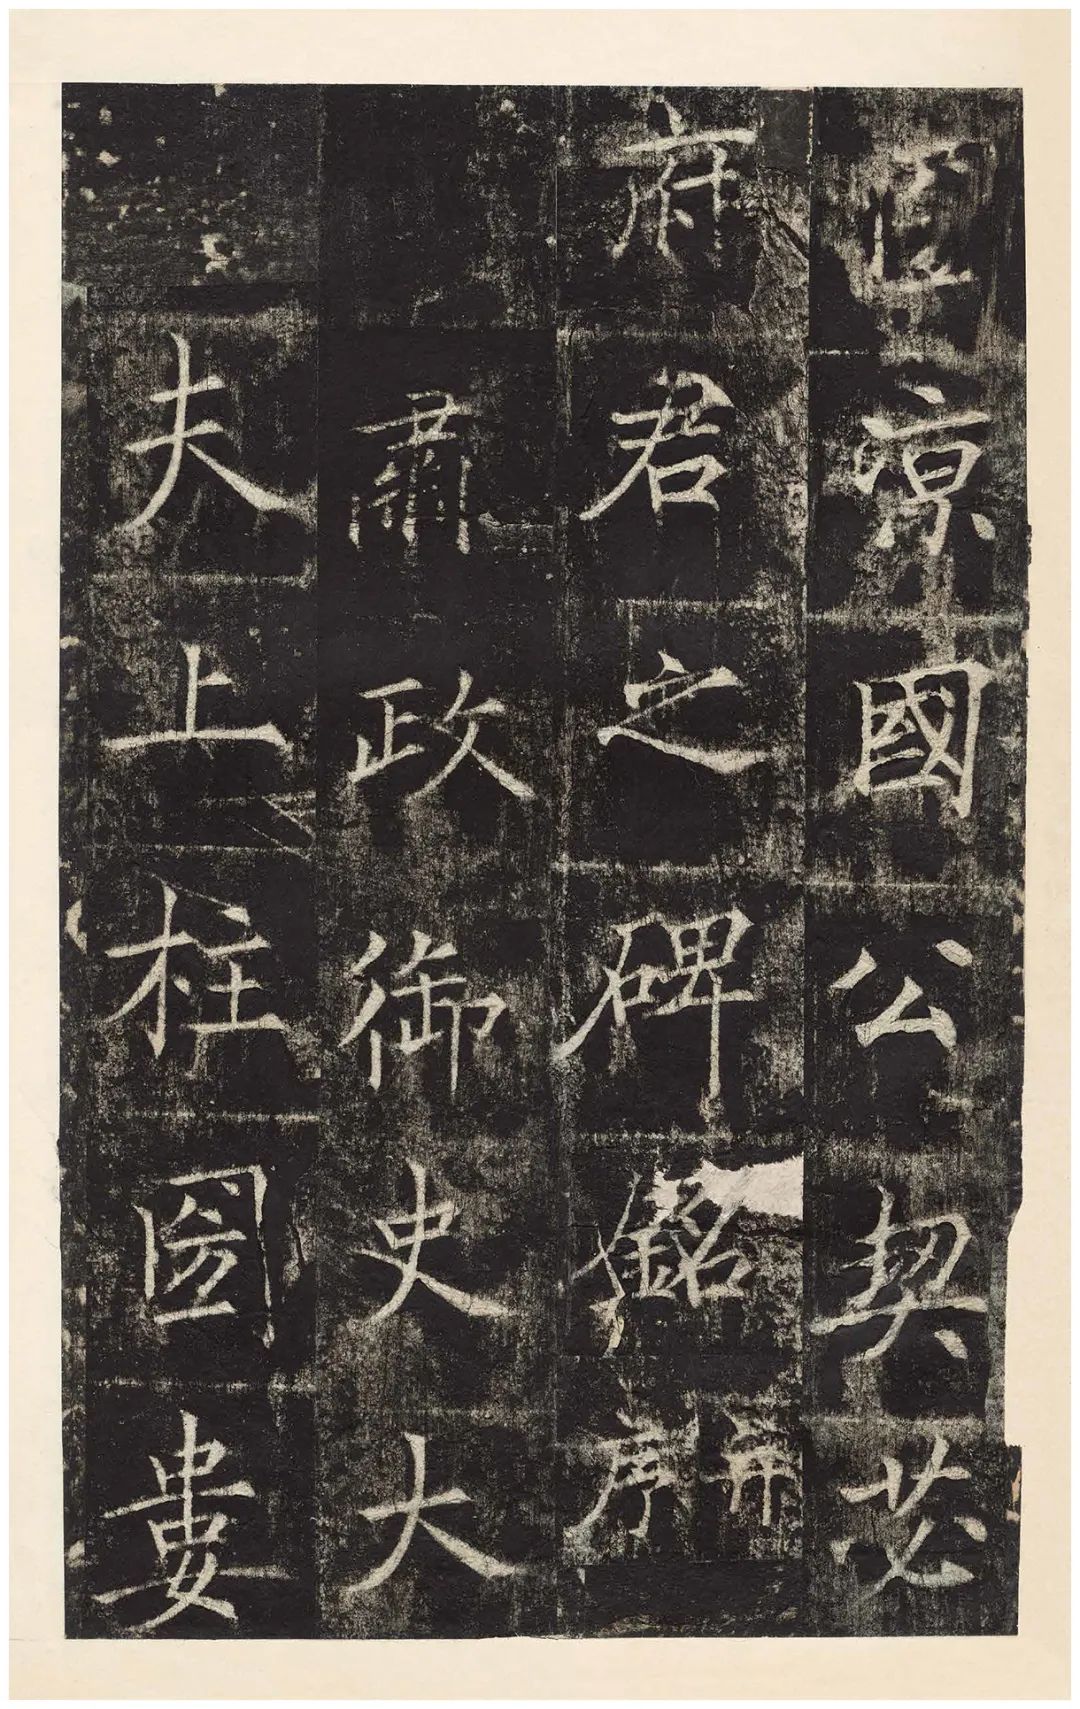 涼國公契苾
府君之碑銘并序
肅政御史大
夫上柱圀婁